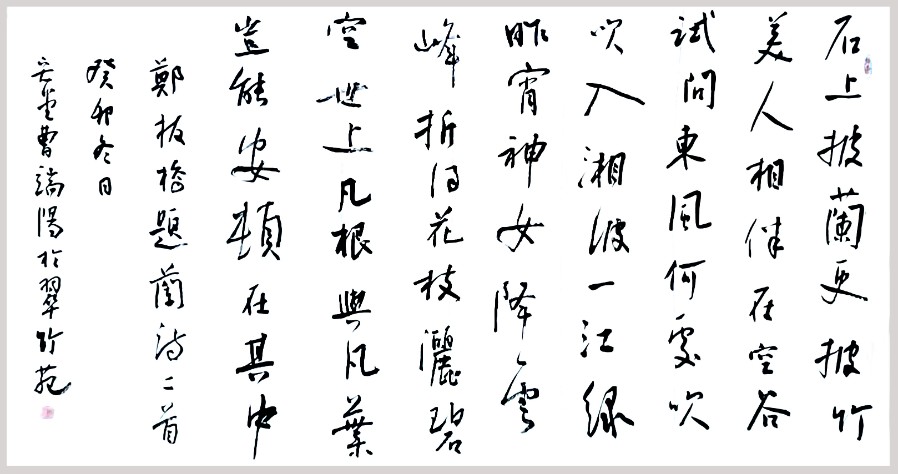 石上披蘭更披竹
美人相伴在空谷
試問東風何處吹
吹入湘波一江綠
昨宵神女降雲
峰折得花枝灑碧
空世上凡根與凡葉
豈能安頓在其中
鄭板橋題蘭詩二首
癸卯冬日
曹端陽於翠竹苑